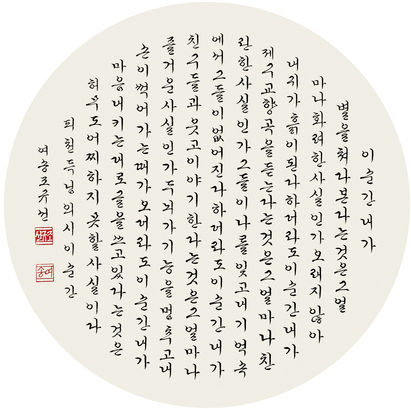 이 순간 내가
별을 쳐다본다는 것은 그 얼
마나 화려한 사실인가 오래지 않아
내 귀가 흙이 된다 하더라도 이 순간 내가
제구교향곡을 듣는다는 것은 그 얼마나 찬
란한 사실인가 그들이 나를 잊고 내 기억 속
에서 그들이 없어진다 하더라도 이 순간 내가
친구들과 웃고 이야기한다는 것은 그 얼마나
즐거운 사실인가 두뇌가 기능을 멈추고 내
손이 썩어가는 때가 오더라도 이 순간 내가
마음 내키는 대로 글을 쓰고 있다는 것은
허무도 어찌하지 못할 사실이다
피천득님의 시 이 순간
여송
여송